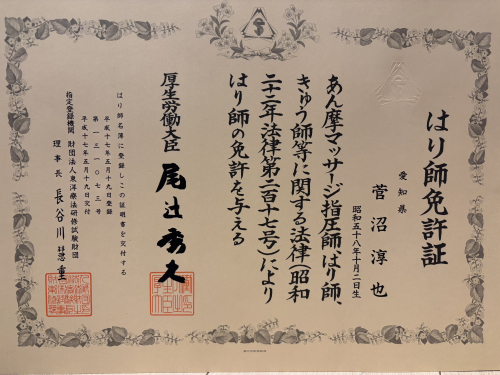 はり師免許証
愛知県
菅沼淳也
昭和五十八年十月二日生
あん摩マッサージ指圧師、はり師、
きゅう師等に関する法律(昭和
二十二年法律第二百十七号)により
はり師の免許を与える
厚生労働大臣 尾辻秀久
はり師名簿に登録しこの証明書を交付する
平成十七年五月十九日登録
平成十七年五月十九日交付
指定登録機関 財団法人東洋療法研修試験財団
理事長 長谷川慧重